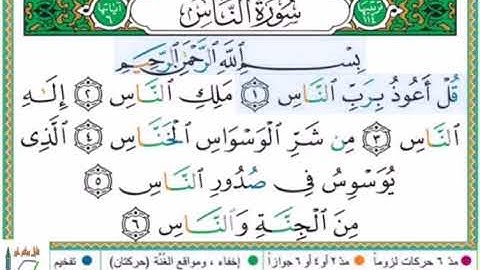 ترتيبها ١١٤
سُورَةُ النَّاسِ
آياتها ٦
بِسْمِ اللَّهِ الرَّحْمَٰنِ الرَّحِيمِ
قُلْ أَعُوذُ بِرَبِّ النَّاسِ ١ مَلِكِ النَّاسِ ٢ إِلَٰهِ
النَّاسِ ٣ مِن شَرِّ الْوَسْوَاسِ الْخَنَّاسِ ٤ الَّذِي
يُوَسْوِسُ فِي صُدُورِ النَّاسِ ٥
مِنَ الْجِنَّةِ وَالنَّاسِ ٦
مدّ ٦ حركات لزوماً مدّ ٢ أو ٤ أو ٦ جوازاً إخفاء ، ومواقع الغُنَّة (حركتان) تفخيم